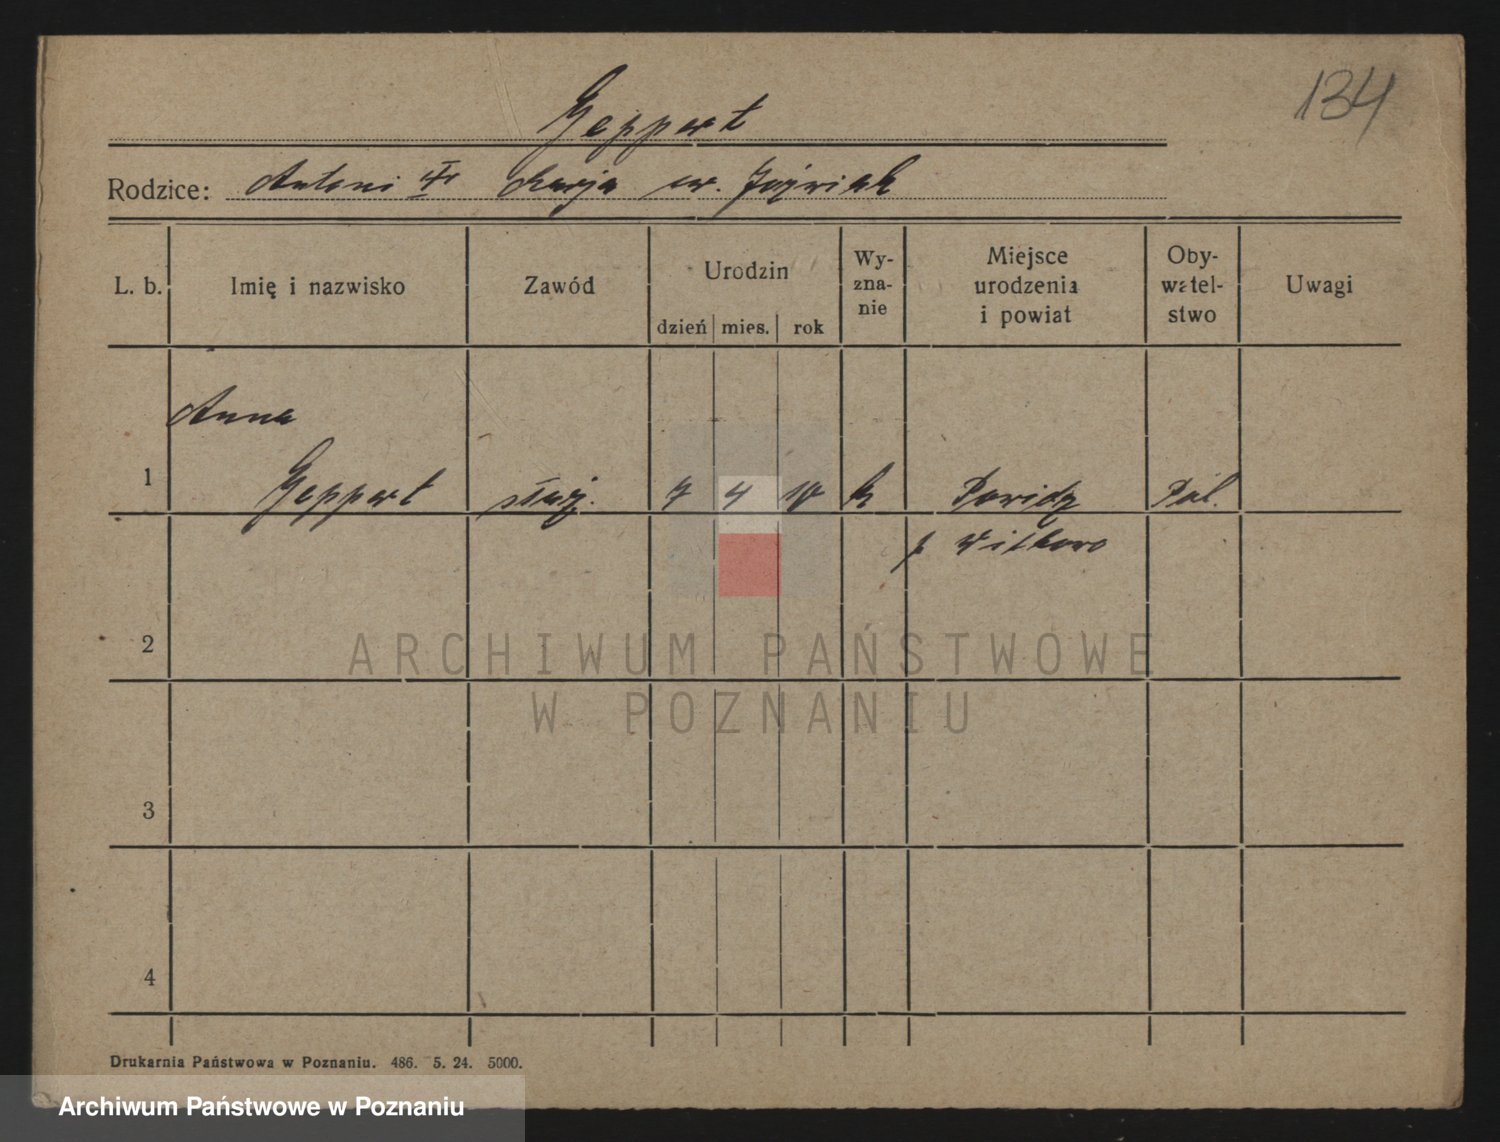 134
Geppert
Rodzice: Antoni Marja ur. Jóźwiak
L. b. Imię i nazwisko Zawód Urodzin dzień mies. rok Wy-zna-nie Miejsce urodzenia i powiat Oby-watel-stwo Uwagi
Anna
1 Geppert służ. 7 4 10 k Powidz Pol.
p Witkowo
2
ARCHIWUM PAŃSTWOWE
W POZNANIU
3
4
Drukarnia Państwowa w Poznaniu. 486. 5. 24. 5000.
Archiwum Państwowe w Poznaniu